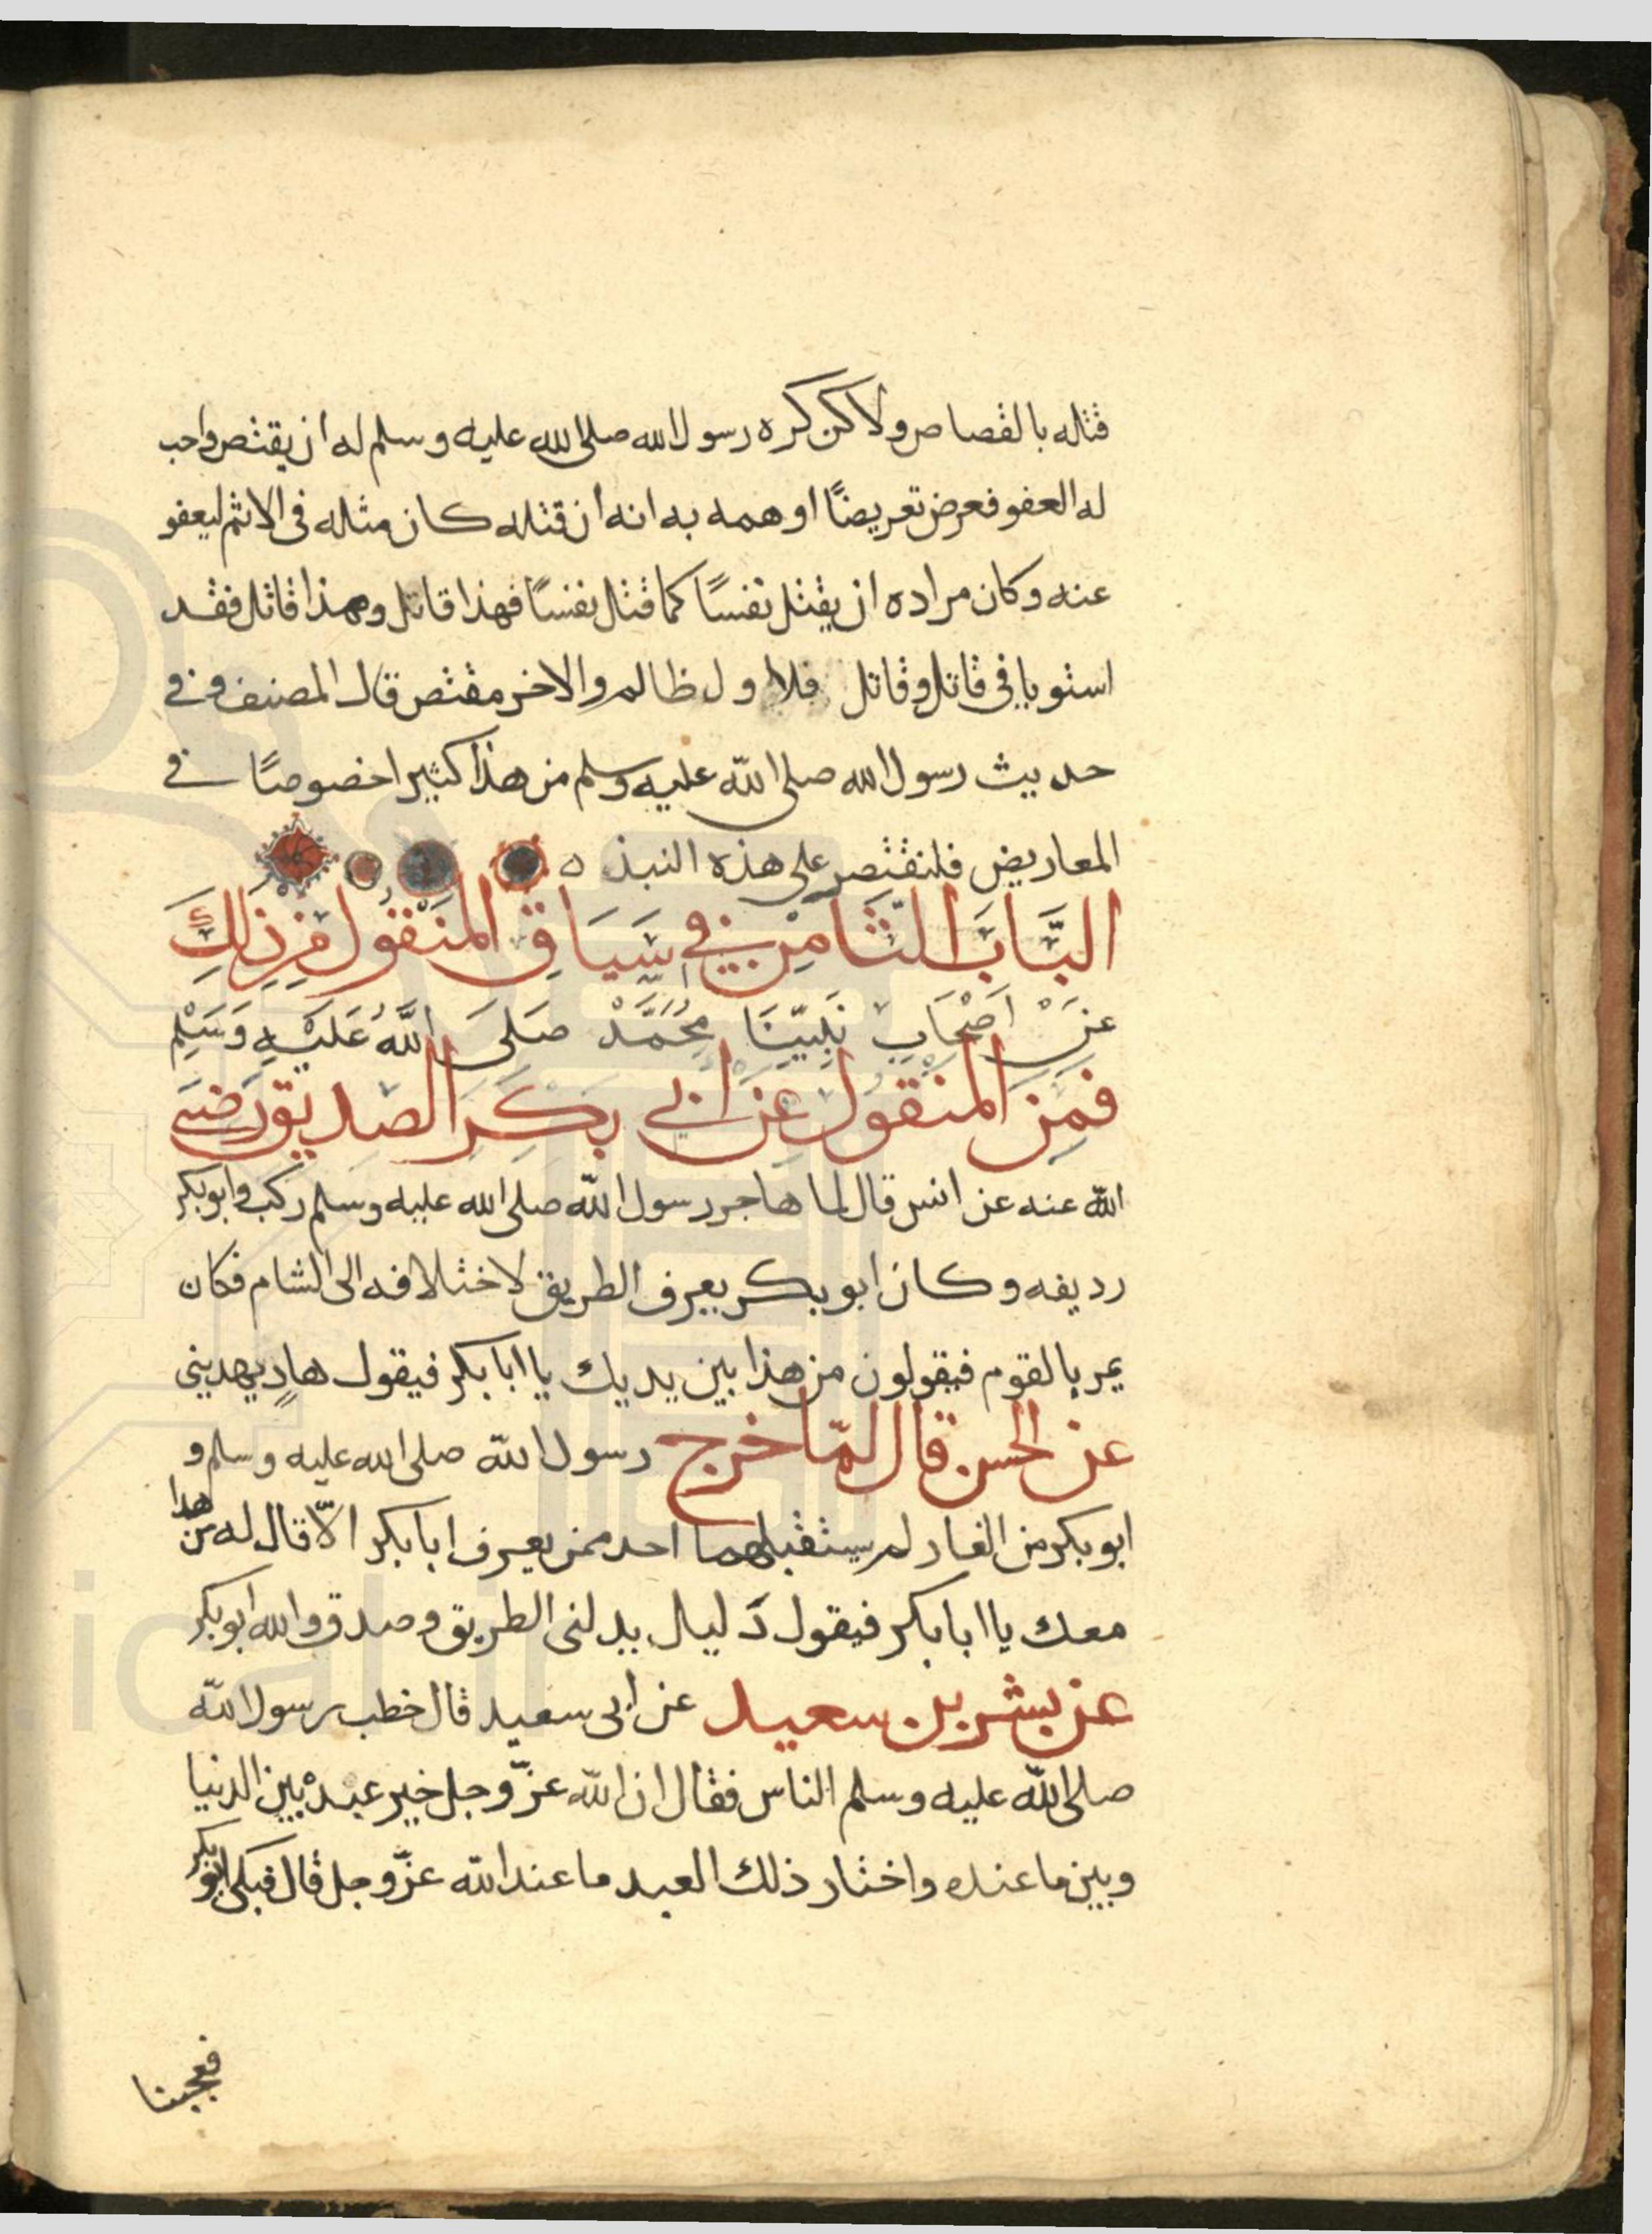 قتله بالقصاص ولاكن كره رسول الله صلى الله عليه وسلم له ان يقتص واحب
له العفو فعرض تعريضًا اوهمه به انه ان قتله كان مثله فى الاثم ليعفو
عنه وكان مراده ان يقتل نفسًا كما قتل نفسًا فهذا قاتل وهذا قاتل فقد
استويا فى قاتل وقاتل فلاول ظالم والاخر مقتص قال المصنف وفي
حديث رسول الله صلى الله عليه وسلم من هذا كثيرا خصوصًا في
المعاريض فلنقتصر على هذه النبذ ه
البَّابَ الثَّامِن في سَيَاقِ المنَقُول مِن ذلِكَ
عَنَ اَصْحَابِ نَبِيّنَا مُحَمَّدْ صَلىَ اللَّهُ عَلَيْهِ وَسَلِم
فَمِن المنْقُول عَن ابي بَكِرَ الصديق رَضيَ
الله عنه عن انس قال لما هاجر رسول الله صلى الله عليه وسلم ركب وابوبكر
رديفه وكان ابو بكر يعرف الطريق لاختلافه الى الشام فكان
يمر بالقوم فيقولون من هذا بين يديك يا ابا بكر فيقول هادٍ يهديني
عن الحسن قال لمّا خرج رسول الله صلى الله عليه وسلم و
ابو بكر من الغار لم يستقبلهما احد ممن يعرف ابا بكر الاّ قال له من هذا
معك يا ابا بكر فيقول دَليل يدلنى الطريق وصدق والله ابو بكر
عن بشر بن سعيد عن ابى سعيد قال خطب رسول الله
صلى الله عليه وسلم الناس فقال ان الله عزّ وجل خير عبدْ بين الدنيا
وبين ما عنده واختار ذلك العبد ما عند الله عزّ وجل قال فبكى ابو بكر
فعجبنا